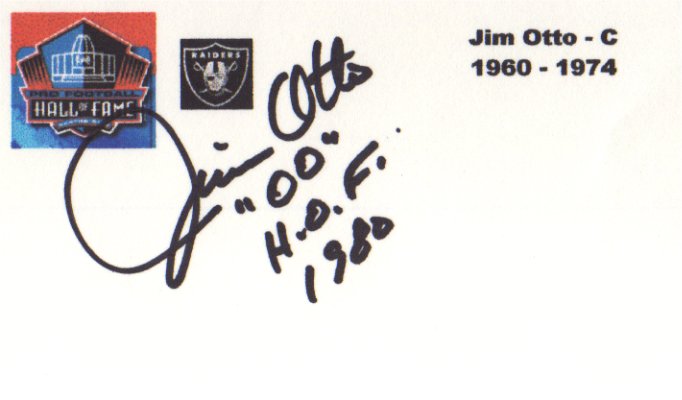 PRO FOOTBALL
HALL OF FAME
RAIDERS
Jim Otto - C
1960 - 1974
Jim Otto
"00"
H.O.F.
1980